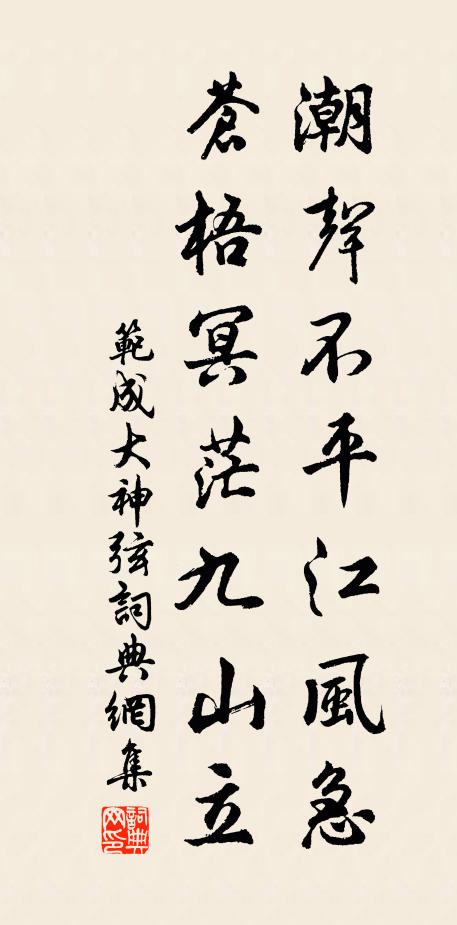 潮聲不平江風急
蒼梧冥茫九山立
範成大神弦詞典網集
詞典網印